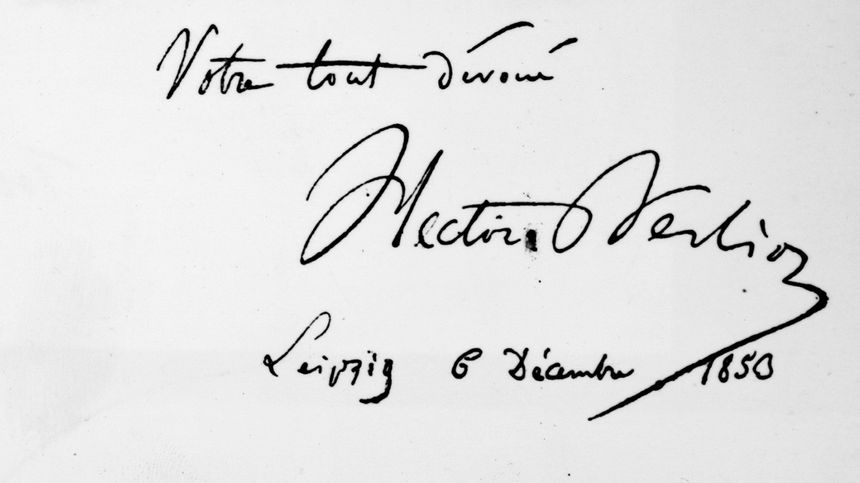 Votre tout dévoué
Hector Berlioz
Leipzig 6 Décembre 1853